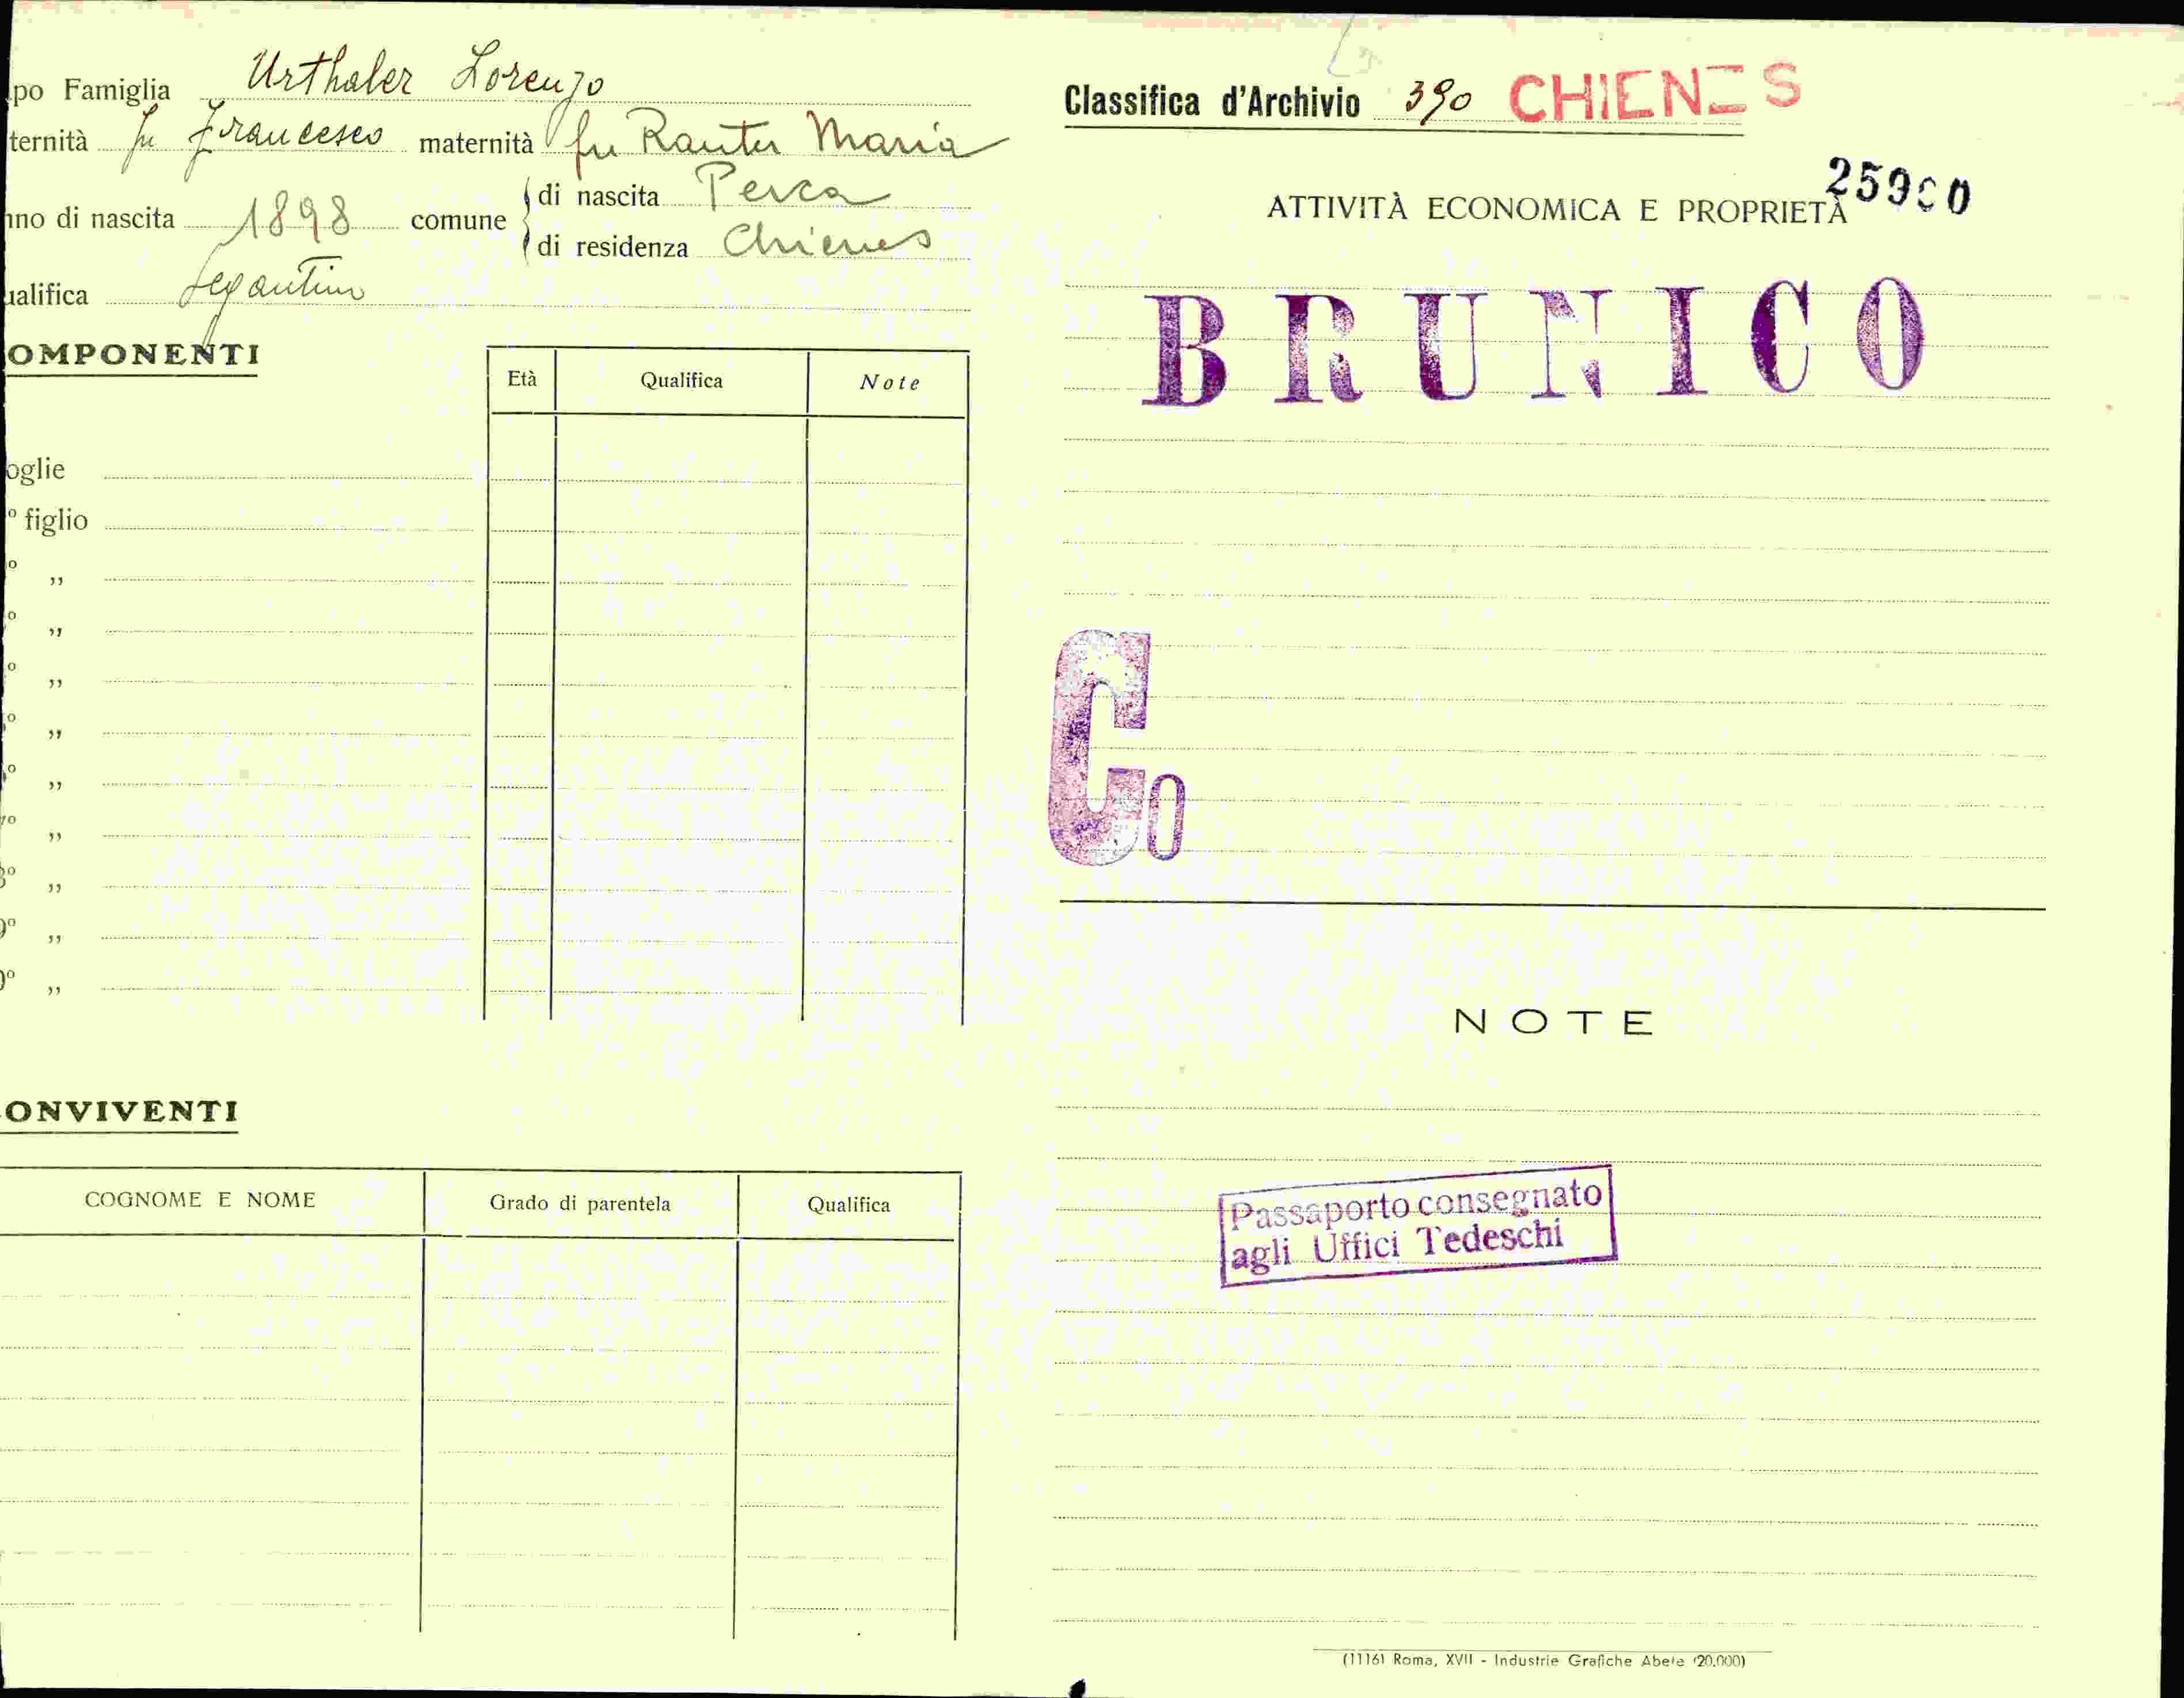 po Famiglia Urthaler Lorenzo
ternità fu Francesco maternità fu Rauter Maria
nno di nascita 1898 comune di nascita Perca
di residenza Chienes
ualifica Segantino
OMPONENTI
Età Qualifica Note
oglie
° figlio
° ,,
° ,,
° ,,
° ,,
° ,,
° ,,
° ,,
° ,,
° ,,
ONVIVENTI
COGNOME E NOME Grado di parentela Qualifica
Classifica d'Archivio 390 CHIENES
ATTIVITÀ ECONOMICA E PROPRIETÀ
BRUNICO
Co
NOTE
Passaporto consegnato
agli Uffici Tedeschi
(1116) Roma, XVII - Industrie Grafiche Abete (20.000)